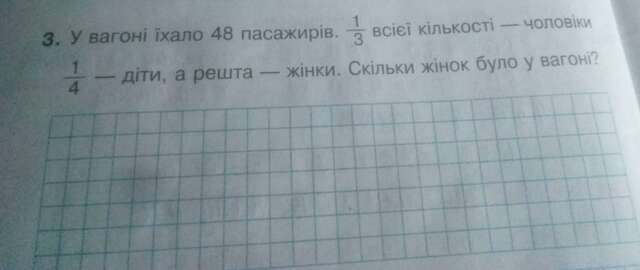 3. У вагоні їхало 48 пасажирів. 1/3 всієї кількості — чоловіки
1/4 — діти, а решта — жінки. Скільки жінок було у вагоні?